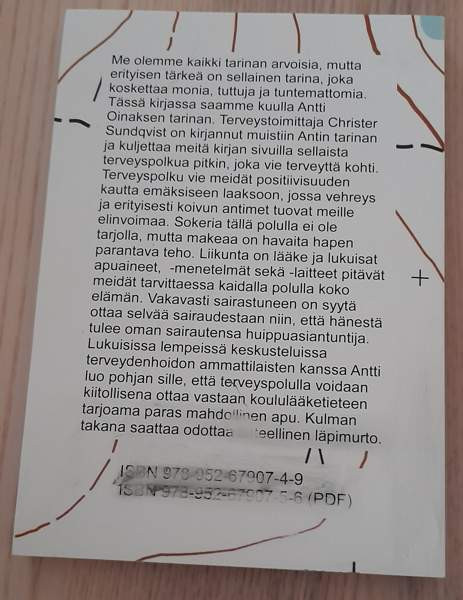 Me olemme kaikki tarinan arvoisia, mutta
erityisen tärkeä on sellainen tarina, joka
koskettaa monia, tuttuja ja tuntemattomia.
Tässä kirjassa saamme kuulla Antti
Oinaksen tarinan. Terveystoimittaja Christer
Sundqvist on kirjannut muistiin Antin tarinan
ja kuljettaa meitä kirjan sivuilla sellaista
terveyspolkua pitkin, joka vie terveyttä kohti.
Terveyspolku vie meidät positiivisuuden
kautta emäksiseen laaksoon, jossa vehreys
ja erityisesti koivun antimet tuovat meille
elinvoimaa. Sokeria tällä polulla ei ole
tarjolla, mutta makeaa on havaita hapen
parantava teho. Liikunta on lääke ja lukuisat
apuaineet, -menetelmät sekä -laitteet pitävät
meidät tarvittaessa kaidalla polulla koko
elämän. Vakavasti sairastuneen on syytä
ottaa selvää sairaudestaan niin, että hänestä
tulee oman sairautensa huippuasiantuntija.
Lukuisissa lempeissä keskusteluissa
terveydenhoidon ammattilaisten kanssa Antti
luo pohjan sille, että terveyspolulla voidaan
kiitollisena ottaa vastaan koululääketieteen
tarjoama paras mahdollinen apu. Kulman
takana saattaa odottaa teellinen läpimurto.
ISBN 978-952-67907-4-9
ISBN 978-952-67907-5-6 (PDF)